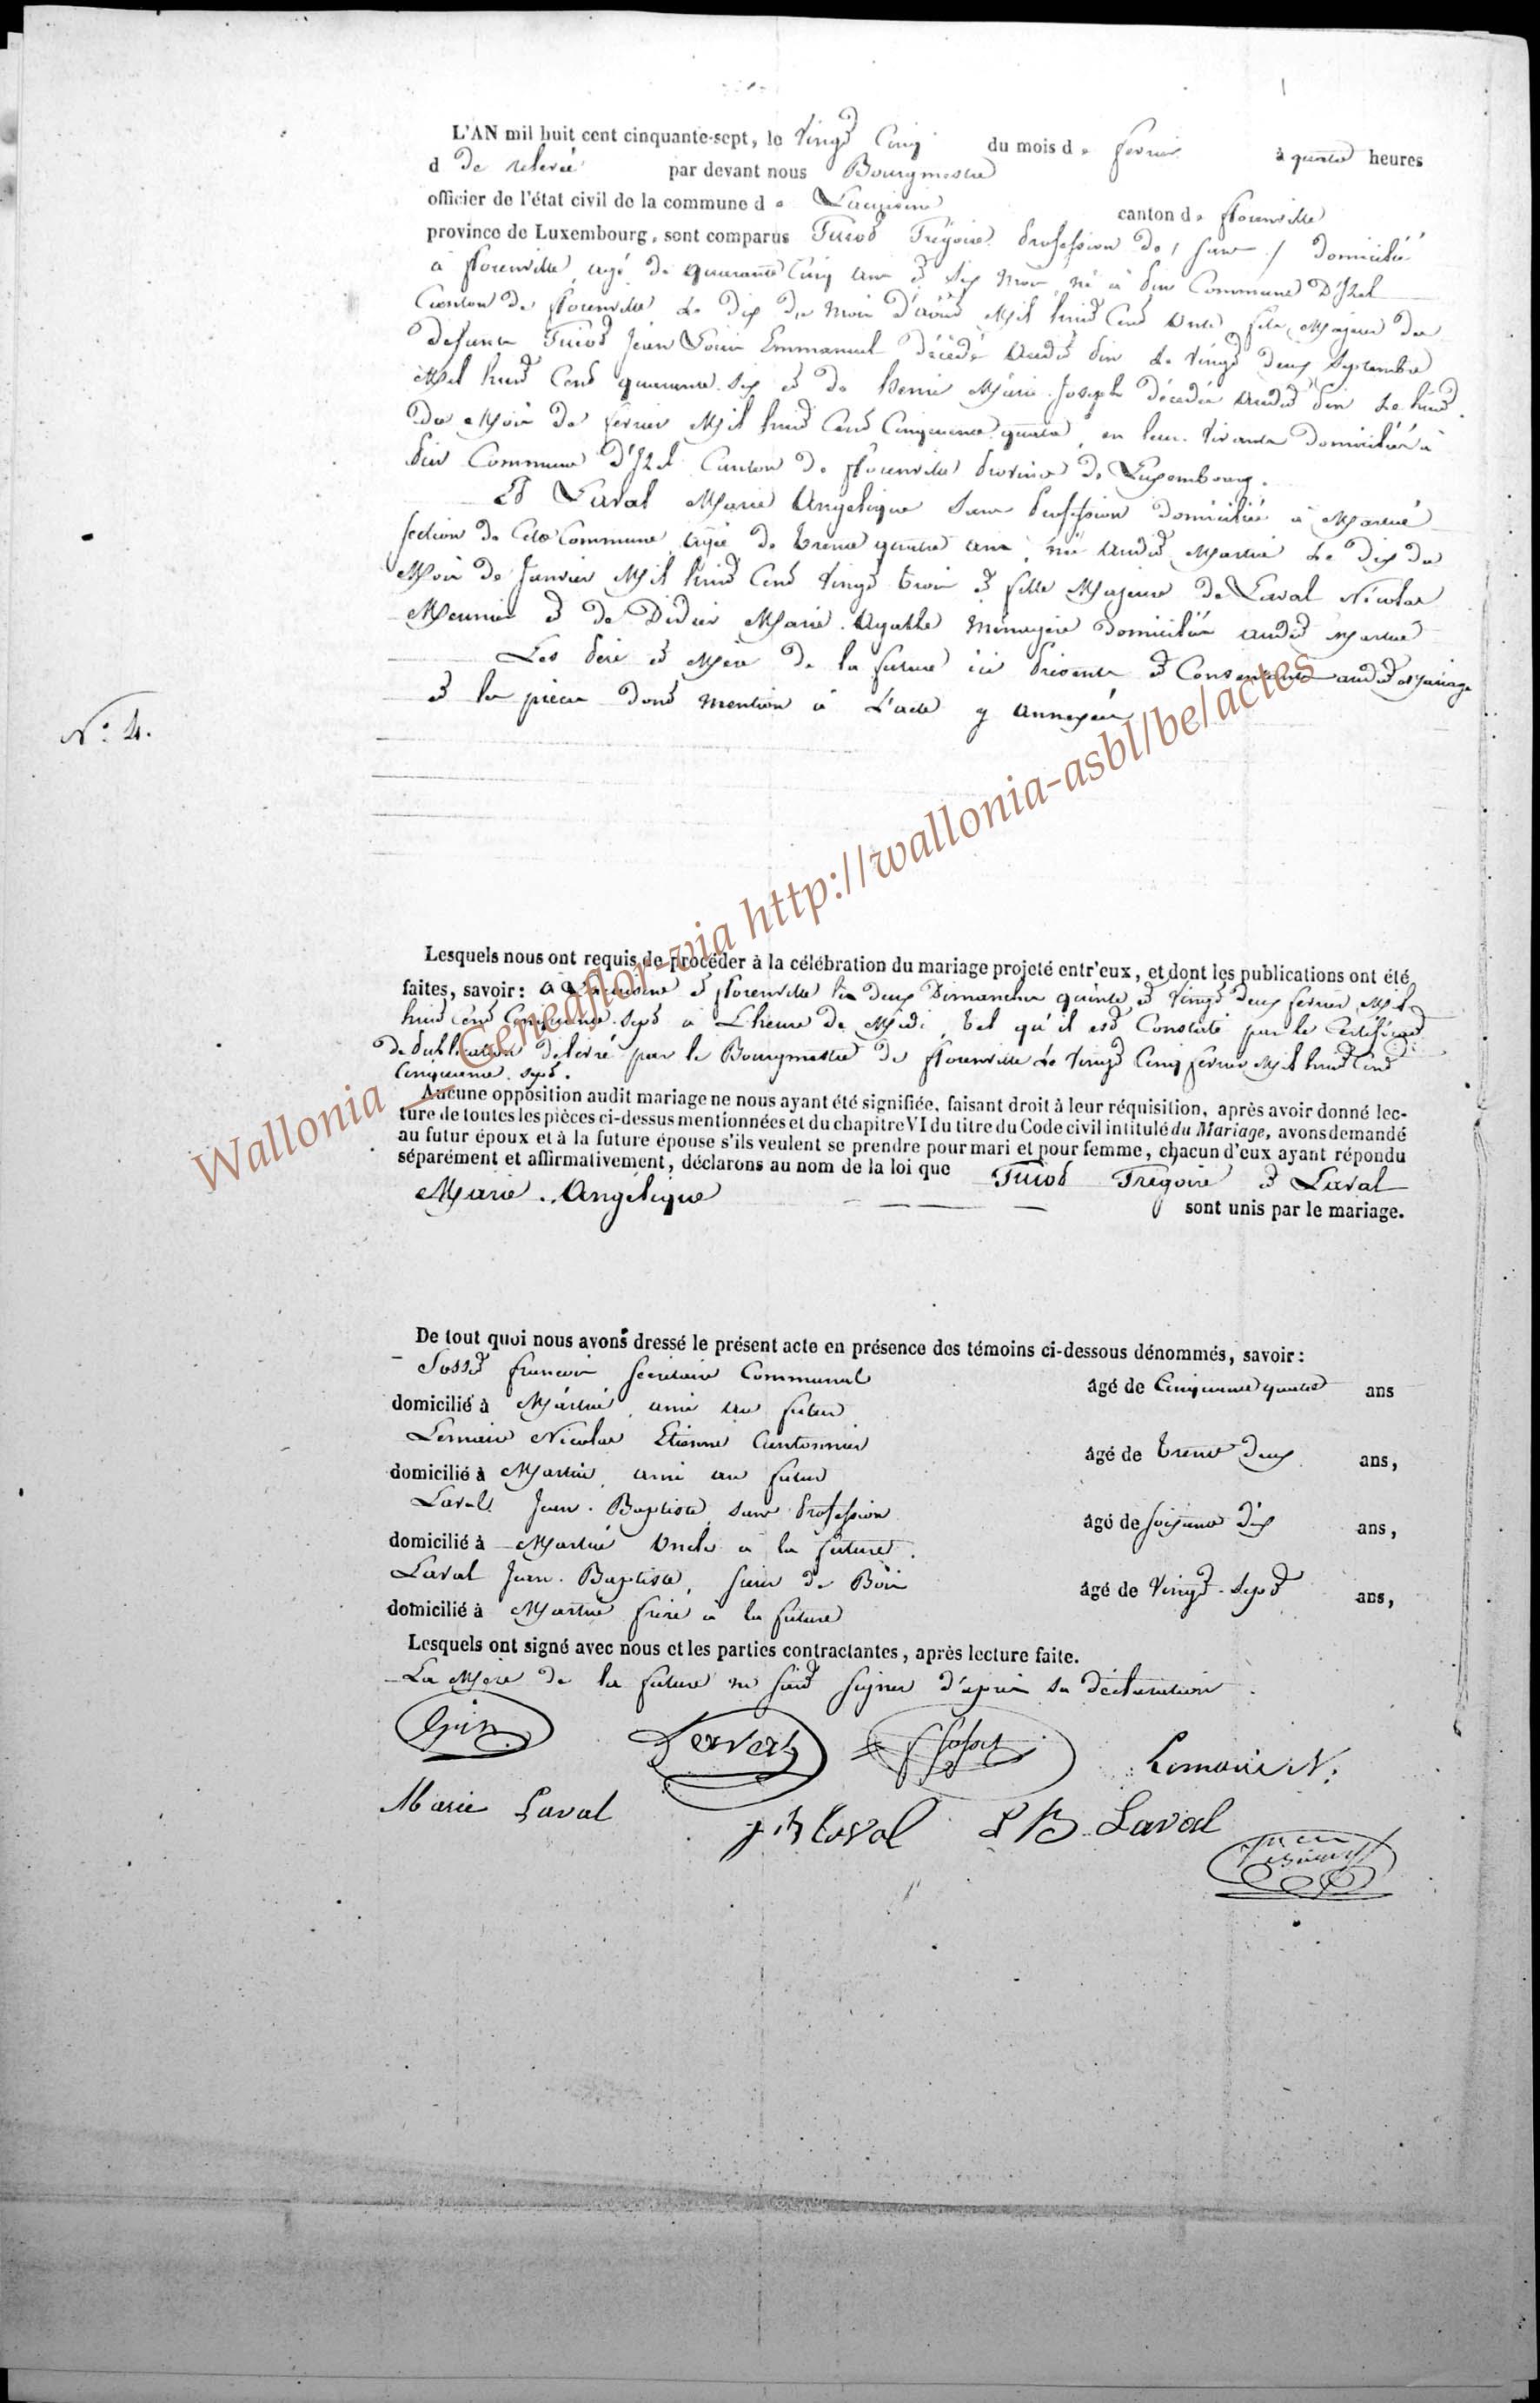 L'AN mil huit cent cinquante-sept, le vingt cinq du mois de fevrier à quatre heures
d de relevée par devant nous Bourgmestre
officier de l'état civil de la commune de Lacuisine canton de florenville
province de Luxembourg, sont comparus Grégoire profession de / sans / domicilié
à florenville, agé de quarante cinq ans et six mois, né à pin Commune D'Izel
Canton de florenville le dix du mois d'août Mil huit Cent onze fils Majeur de
defunts Jean Louis Emmanuel décédé audit pin le vingt deux Septembre
Mil huit Cent quarante six et de Marie Joseph décédée audit pin le huit
du Mois de fevrier Mil huit Cent Cinquante quatre, en leur vivants domiciliés à
pin Commune d'Izel Canton de florenville province de Luxembourg.
Et Laval Marie Angelique Sans profession domiciliée à Martué
section de Cette Commune, agée de trente quatre ans, née audit Martué le dix du
Mois de Janvier Mil huit Cent vingt trois et fille Majeure de Laval Nicolas
Meunier et de Didier Marie Agathe Ménagère domiciliés audit Martué
Les père et Mère de la future ici présents et Consentants audit Mariage
et les pièces dont mention à l'acte y annexées
N° 4.
Lesquels nous ont requis de procéder à la célébration du mariage projeté entr'eux, et dont les publications ont été
faites, savoir: à Lacuisine et florenville les deux Dimanches quinze et vingt deux fevrier Mil
huit Cent Cinquante Sept à L'heure de Midi, tel qu'il est Constaté par le Certificat
de publication délivré par le Bourgmestre de florenville le vingt Cinq fevrier Mil huit Cent
Cinquante Sept.
Aucune opposition audit mariage ne nous ayant été signifiée, faisant droit à leur réquisition, après avoir donné lec-
ture de toutes les pièces ci-dessus mentionnées et du chapitre VI du titre du Code civil intitulé du Mariage, avons demandé
au futur époux et à la future épouse s'ils veulent se prendre pour mari et pour femme, chacun d'eux ayant répondu
séparément et affirmativement, déclarons au nom de la loi que Grégoire et Laval
Marie Angélique sont unis par le mariage.
De tout quoi nous avons dressé le présent acte en présence des témoins ci-dessous dénommés, savoir:
françois secrétaire Communal âgé de Cinquante quatre ans
domicilié à Martué, ami au futur
Lemaire Nicolas Etienne Cantonnier âgé de trente deux ans,
domicilié à Martué, ami au futur
Laval Jean Baptiste sans profession âgé de soixante dix ans,
domicilié à Martué Oncle à la future.
Laval Jean Baptiste, de Bois âgé de vingt sept ans,
domicilié à Martué frère à la future
Lesquels ont signé avec nous et les parties contractantes, après lecture faite.
La Mère de la future ne sait signer d'après sa déclaration.
Lemaire N.
Marie Laval J B Laval J B Laval
Wallonia _ Geneaflor-via http://wallonia-asbl/be/actes